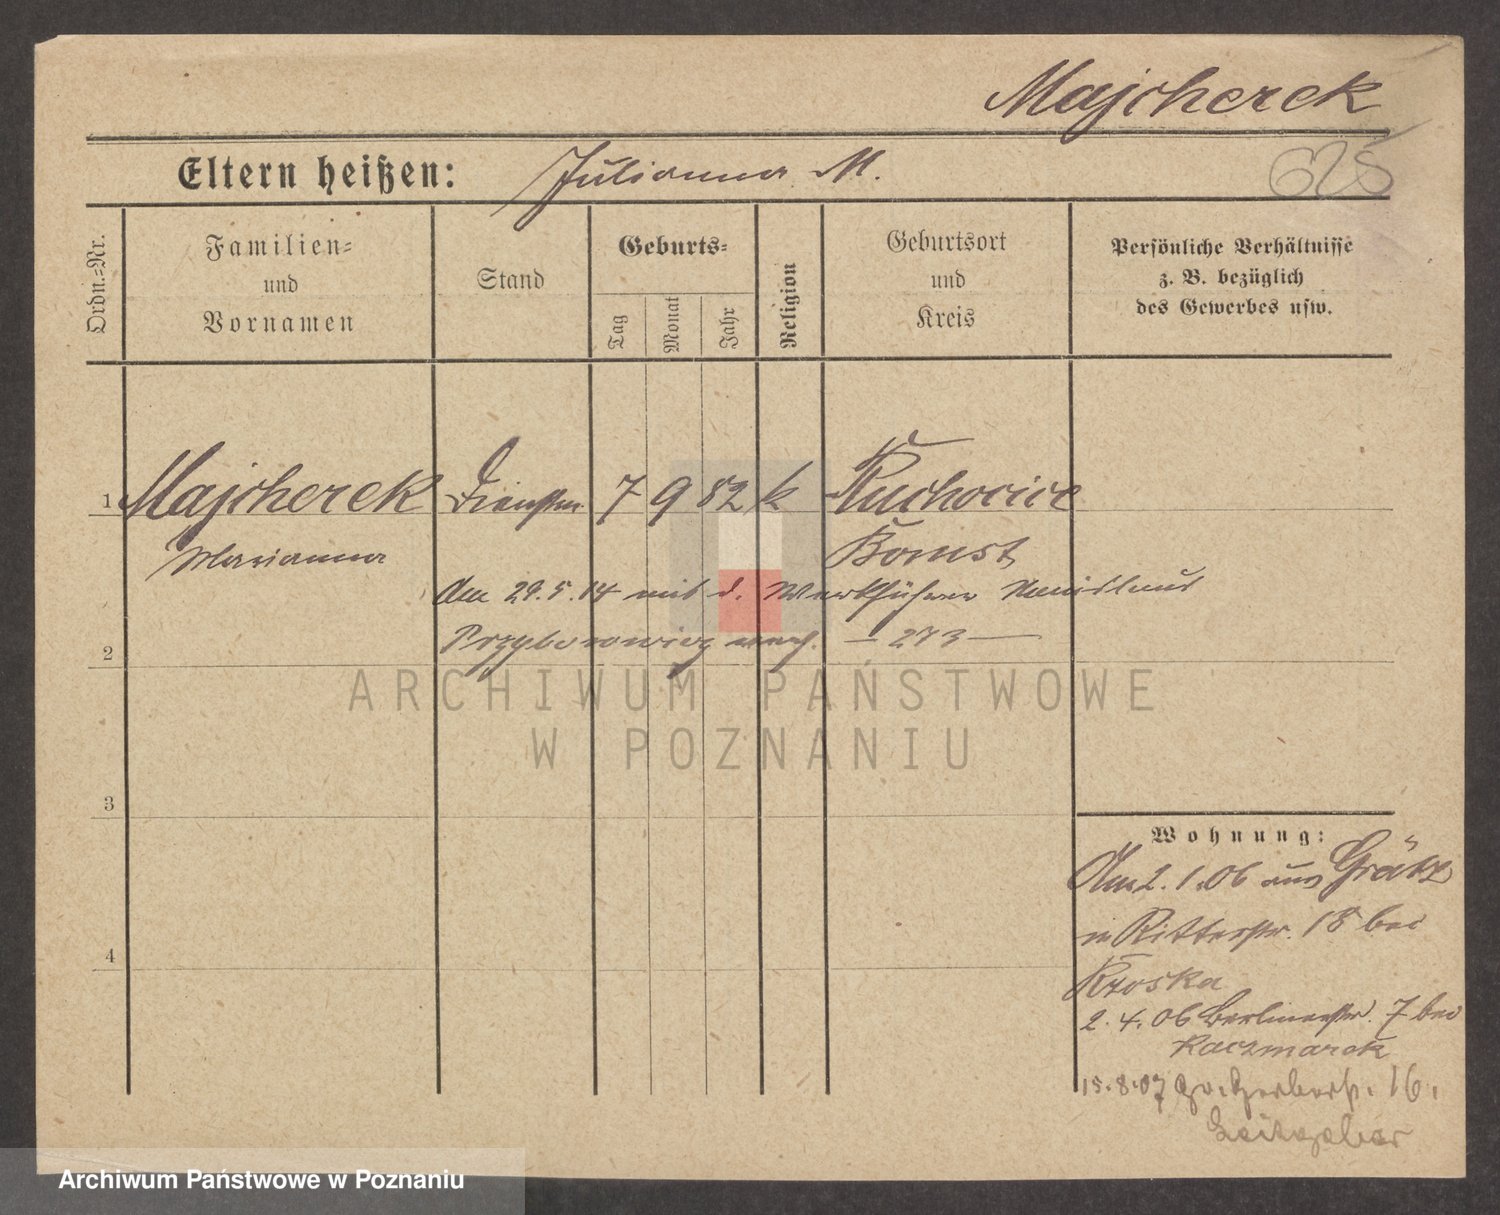 Majcherek
Eltern heißen: Julianna M.
625
Ordn.=Nr.
Familien=
und
Vornamen
Stand
Geburts=
Tag
Monat
Jahr
Religion
Geburtsort
und
Kreis
Persönliche Verhältnisse
z. B. bezüglich
des Gewerbes usw.
1 Majcherek Dienstm. 7 9 82 k Kuchocice
Marianna Bomst
Am 29.5.14 mit d. Werkführer
Przyborowicz verh. — 273 —
2
ARCHIWUM PAŃSTWOWE
W POZNANIU
3
Wohnung:
Am 2.1.06 aus Grätz
n Ritterstr. 18 bei
Kroska
4
2.4.06 Berlinerstr. 7 bei
Kaczmarek
15.8.07 Gr. Gerberstr. 16.
Leitgeber
Archiwum Państwowe w Poznaniu